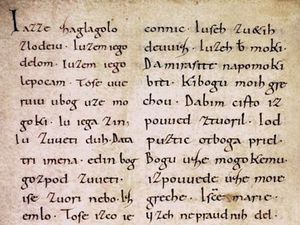 Iazze zaglagolo
zlodeiu · Iuzem iego
delom · Iuzem iego
lepocam · Toſe uue
ruiu ubog uze mo
goki · Iu iega zin ·
Iu Zuueti duh Data
tri imena · edin bog
gozpod zuueti ·
iſe zuori nebo · Iz
emlo · Toſe izco ie
connic · Iuſeh zu&ih
deuuiz · Iuzeh moki ·
Da miraſite napomoki
biti · Ki bogu moih gre
chou · Dabim ciſto iz
poued ztuoril · Iod
puztic otboga priel ·
Bogu uze mogokemu ·
izpouuede uze moie
greche · Iſce marie ·
uzeh nepraudnih del ·